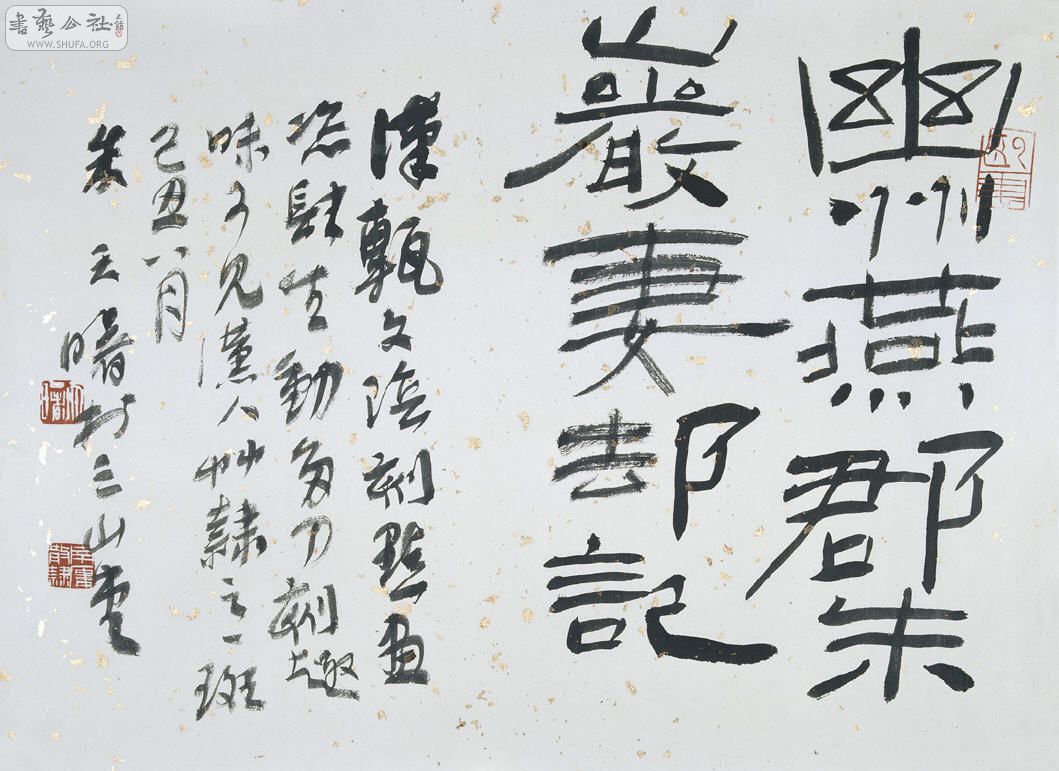 幽州燕郡朱
巖妻却記
漢甎文陰刻點畫
恣肆生動多刀刻趣
味可見漢人艸隸之一斑
己丑八月
朱天曙於三山堂
書藝公社
WWW.SHUFA.ORG